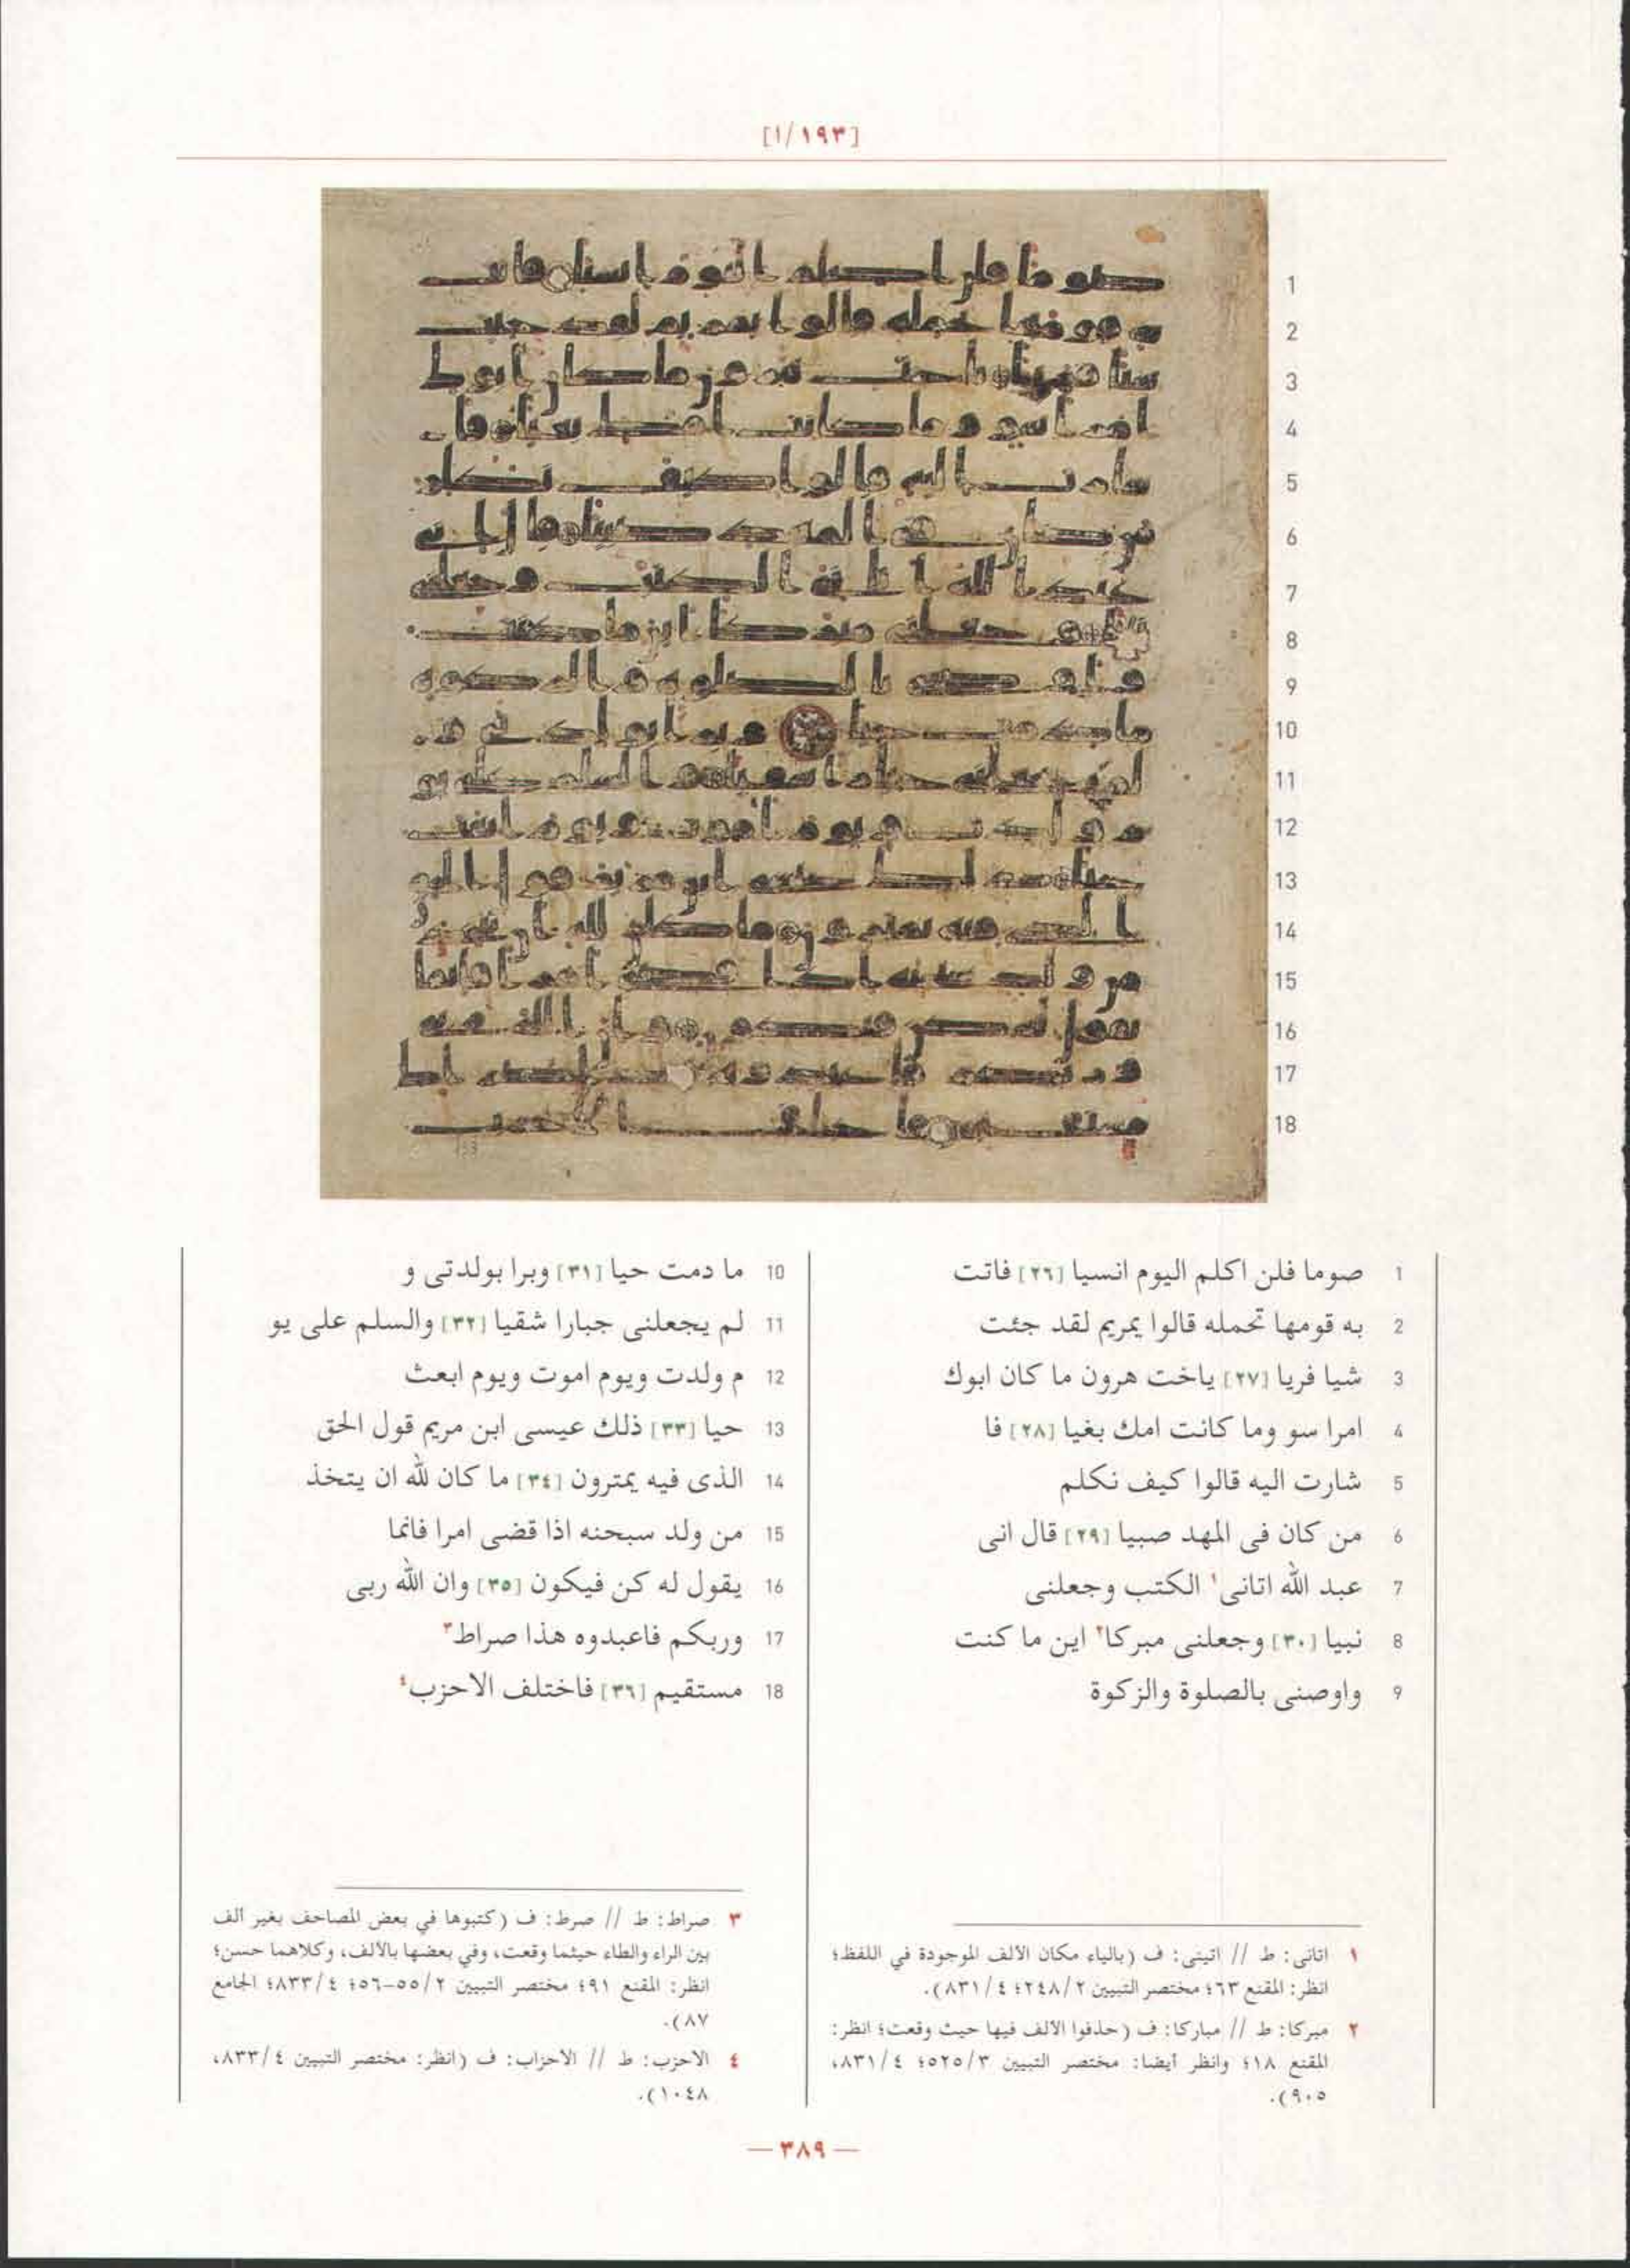 [١/١٩٣]
1 صوما فلن اكلم اليوم انسيا [٢٦] فاتت
2 به قومها تحمله قالوا يمريم لقد جئت
3 شيا فريا [٢٧] ياخت هرون ما كان ابوك
4 امرا سو وما كانت امك بغيا [٢٨] فا
5 شارت اليه قالوا كيف نكلم
6 من كان فى المهد صبيا [٢٩] قال انى
7 عبد الله اتانى١ الكتب وجعلنى
8 نبيا [٣٠] وجعلنى مبركا٢ اين ما كنت
9 واوصنى بالصلوة والزكوة
10 ما دمت حيا [٣١] وبرا بولدتى و
11 لم يجعلنى جبارا شقيا [٣٢] والسلم على يو
12 م ولدت ويوم اموت ويوم ابعث
13 حيا [٣٣] ذلك عيسى ابن مريم قول الحق
14 الذى فيه يمترون [٣٤] ما كان لله ان يتخذ
15 من ولد سبحنه اذا قضى امرا فانما
16 يقول له كن فيكون [٣٥] وان الله ربى
17 وربكم فاعبدوه هذا صراط٣
18 مستقيم [٣٦] فاختلف الاحزب٤
١ اتانى: ط // اتينى: ف (بالياء مكان الألف الموجودة في اللفظ؛
انظر: المقنع ٦٣؛ مختصر التبيين ٢/٢٤٨؛ ٤/٨٣١).
٢ مبركا: ط // مباركا: ف (حذفوا الألف فيها حيث وقعت؛ انظر:
المقنع ١٨؛ وانظر أيضا: مختصر التبيين ٣/٥٢٥؛ ٤/٨٣١،
٩٠٥).
٣ صراط: ط // صرط: ف (كتبوها في بعض المصاحف بغير ألف
بين الراء والطاء حيثما وقعت، وفي بعضها بالألف، وكلاهما حسن؛
انظر: المقنع ٩١؛ مختصر التبيين ٢/٥٥-٥٦؛ ٤/٨٣٣؛ الجامع
٨٧).
٤ الاحزب: ط // الاحزاب: ف (انظر: مختصر التبيين ٤/٨٣٣،
١٠٤٨).
— ٣٨٩ —